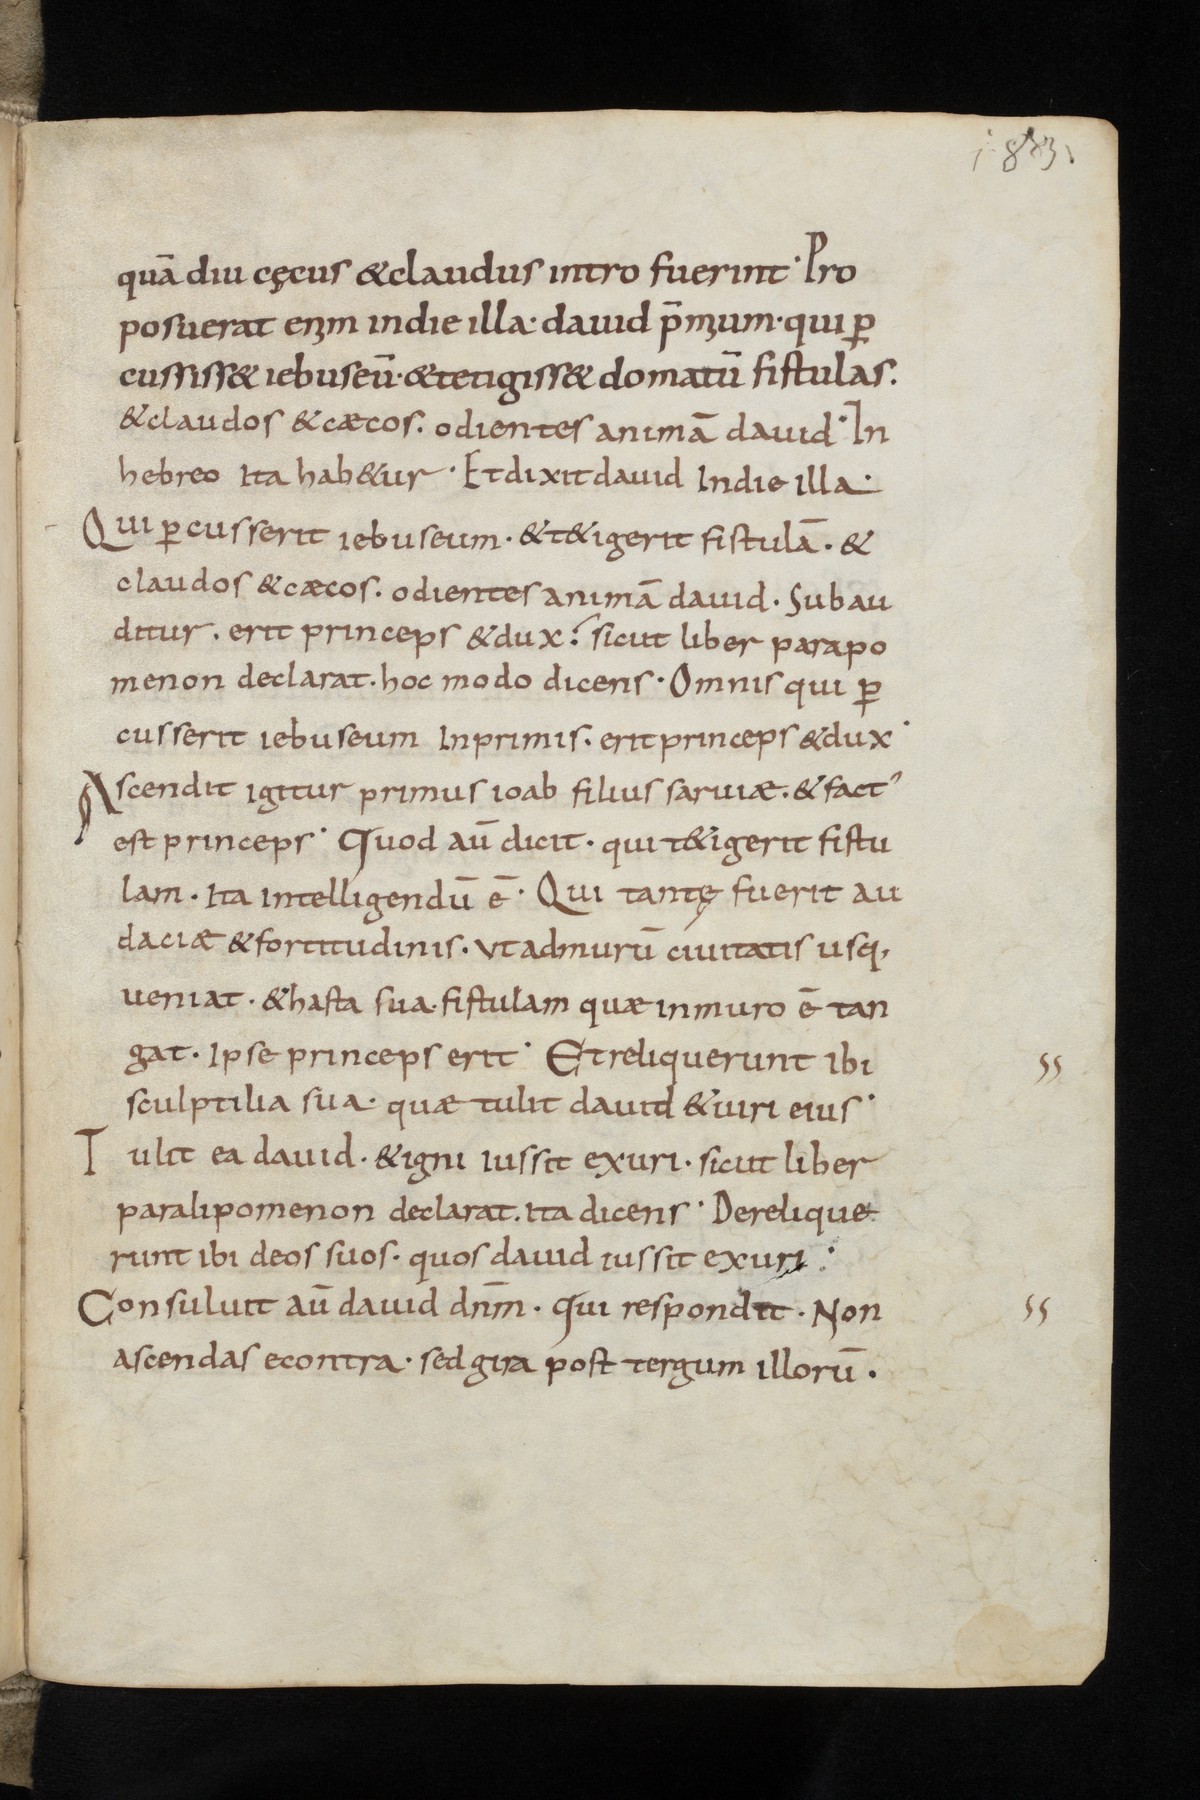 quā diu cęcus &claudus intro fuerint· Pro
posuerat enim indie illa· dauid p̄mium· qui ꝑ
cussiss& iebuseū· &tetigiss& domatū fistulas.
&claudos &cæcos. odientes animā dauid· In
hebreo ita hab&ur· Et dixit dauid Indie illa·
Qui ꝑcusserit iebuseum· &t&igerit fistulā· &
claudos &cæcos. odientes animā dauid. Subau
ditur. erit princeps &dux? sicut liber parapo
menon declarat. hoc modo dicens· Omnis qui ꝑ
cusserit iebuseum Inprimis. erit princeps &dux·
Ascendit igitur primus ioab filius saruiæ. &fact᾿
est princeps· Quod aū dicit· qui t&igerit fistu
lam· Ita intelligendū ē· Qui tantę fuerit au
daciæ &fortitudinis· vt admurū ciuitatis usq,
ueniat· &hasta sua· fistulam quæ inmuro ē tan
gat· Ipse princeps erit· Et reliquerunt ibi
ss
sculptilia sua· quæ tulit dauid &uiri eius·
Tulit ea dauid· &igni iussit exuri· sicut liber
paralipomenon declarat. ita dicens· Derelique
runt ibi deos suos· quos dauid iussit exuri:
Consuluit aū dauid dn̄m· Qui respondit· Non
ss
ascendas econtra· sed gira post tergum illorū·